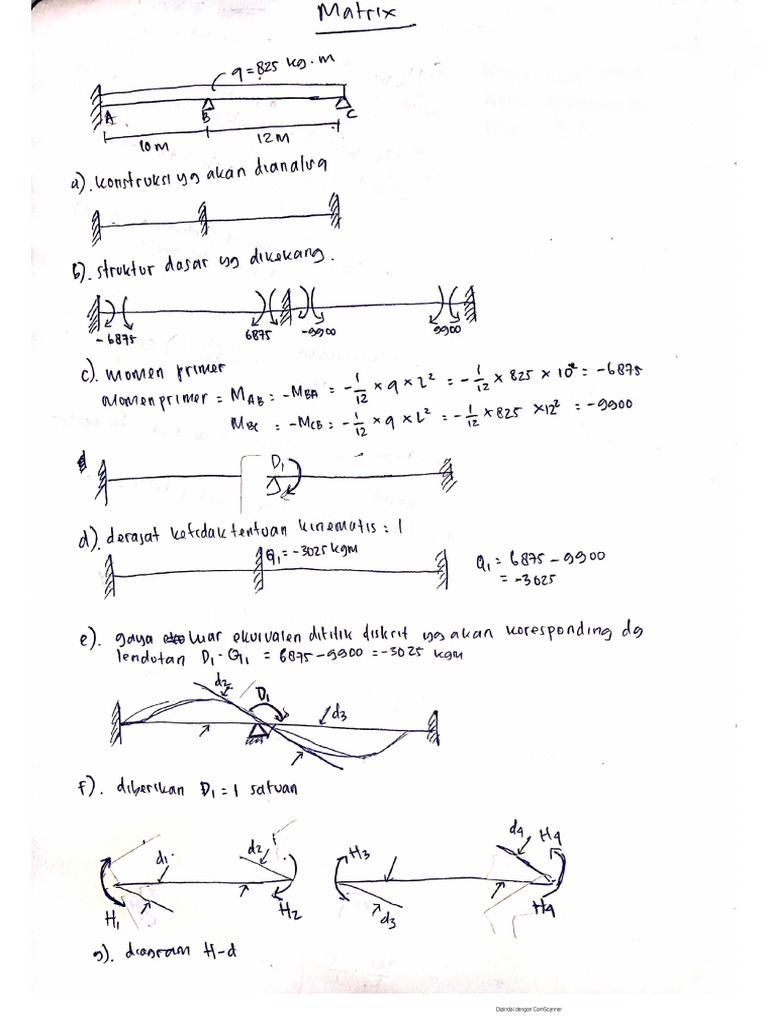 Matrix
q = 825 kg.m
A B C
10 m 12 M
a). konstruksi yg akan dianalisa
b). struktur dasar yg dikekang.
-6875 6875 -9900 9900
c). momen primer
momen primer = MAB = -MBA = -1/12 × q × L² = -1/12 × 825 × 10² = -6875
MBC = -MCB = -1/12 × q × L² = -1/12 × 825 × 12² = -9900
D1
d). derajat ketidaktentuan kinematis = 1
Q1 = -3025 kgm
Q1 = 6875 - 9900
= -3025
e). gaya luar ekuivalen dititik diskrit yg akan koresponding dg
lendutan D1. Q1 = 6875 - 9900 = -3025 kgm
d2 D1 d3
f). diberikan D1 = 1 satuan
d1 d2 H3 d4 H4
H1 H2 d3 H4
g). diagram H-d
Dipindai dengan CamScanner